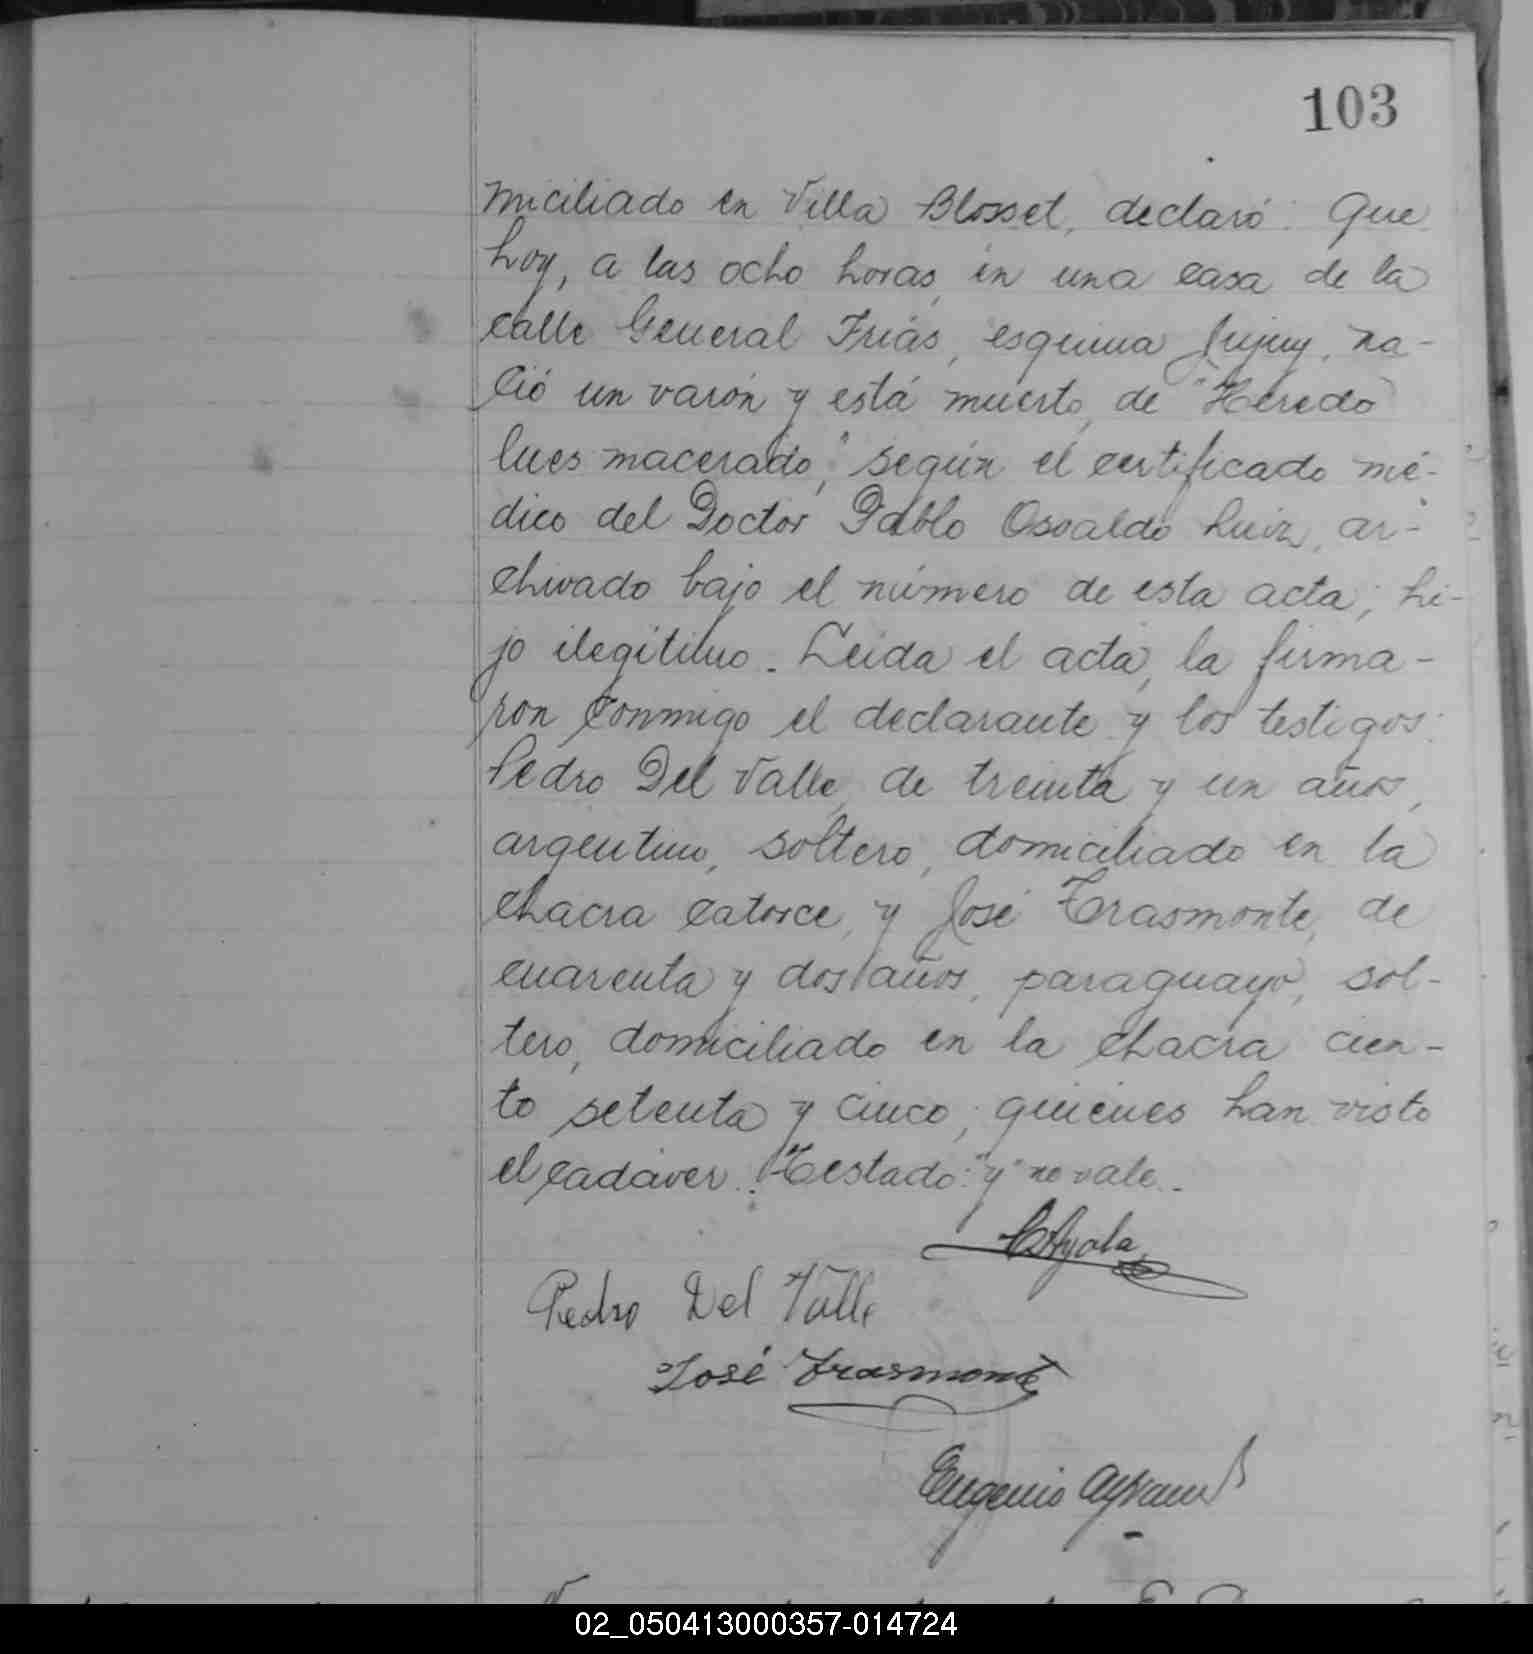 103
miciliado en Villa Blosset, declaró: Que
hoy, a las ocho horas, en una casa de la
calle General Frías, esquina Jujuy, na-
ció un varón y está muerto, de "Heredo
lues macerado," según el certificado mé-
dico del Doctor Pablo Osvaldo Luiz, ar-
chivado bajo el número de esta acta; hi-
jo ilegítimo. Leida el acta, la firma-
ron conmigo el declarante y los testigos:
Pedro Del Valle, de treinta y un años,
argentino, soltero, domiciliado en la
chacra catorce, y José Trasmonte, de
cuarenta y dos años, paraguayo, sol-
tero, domiciliado en la chacra cien-
to setenta y cinco; quienes han visto
el cadáver. Testado: "y" no vale.-
Ayala
Pedro Del Valle
José Trasmonte
Eugenio
02_050413000357-014724